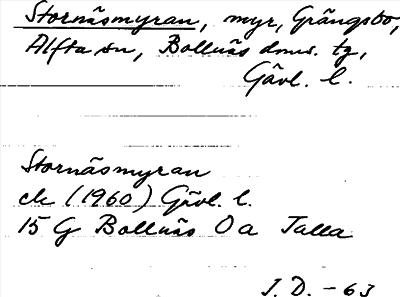 Stornäsmyran, myr, Grängsbo,
Alfta sn, Bollnäs dms. tg,
Gävl. l.
Stornäsmyran
ek (1960) Gävl. l.
15 G Bollnäs O a Talla
J. D. - 63